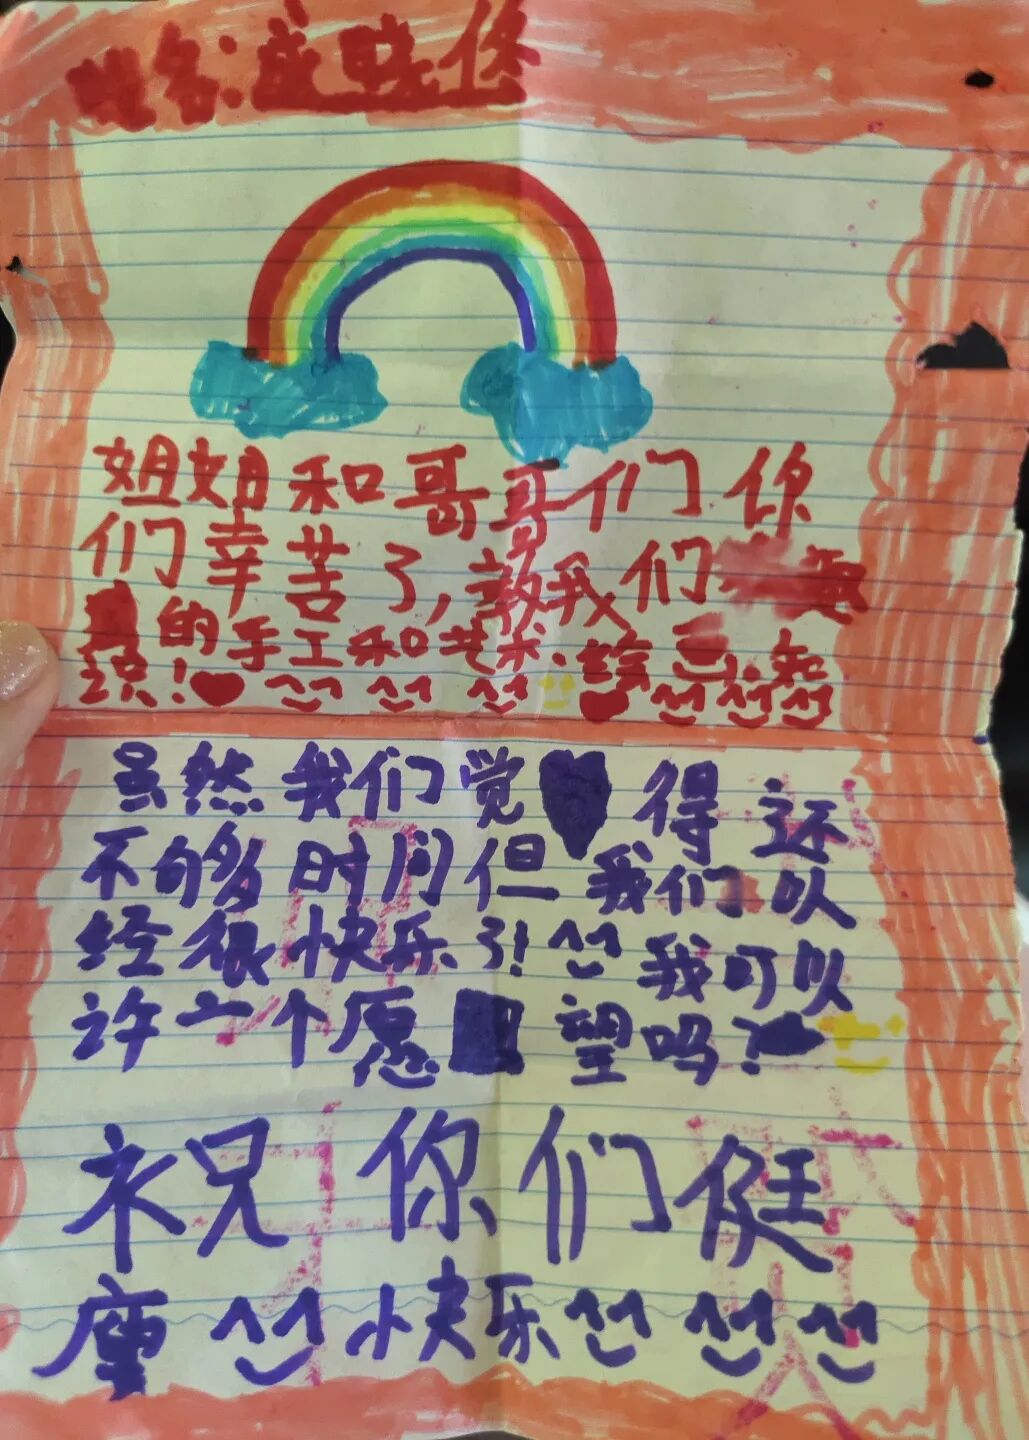 姓名:盛晓依
姐姐和哥哥们你
们幸苦了,教我们
的手工和艺术.绘画.知
识!
虽然我们觉得还
不够多时间但我们以
经很快乐了!我可以
许一个愿望吗?
祝你们健
康快乐